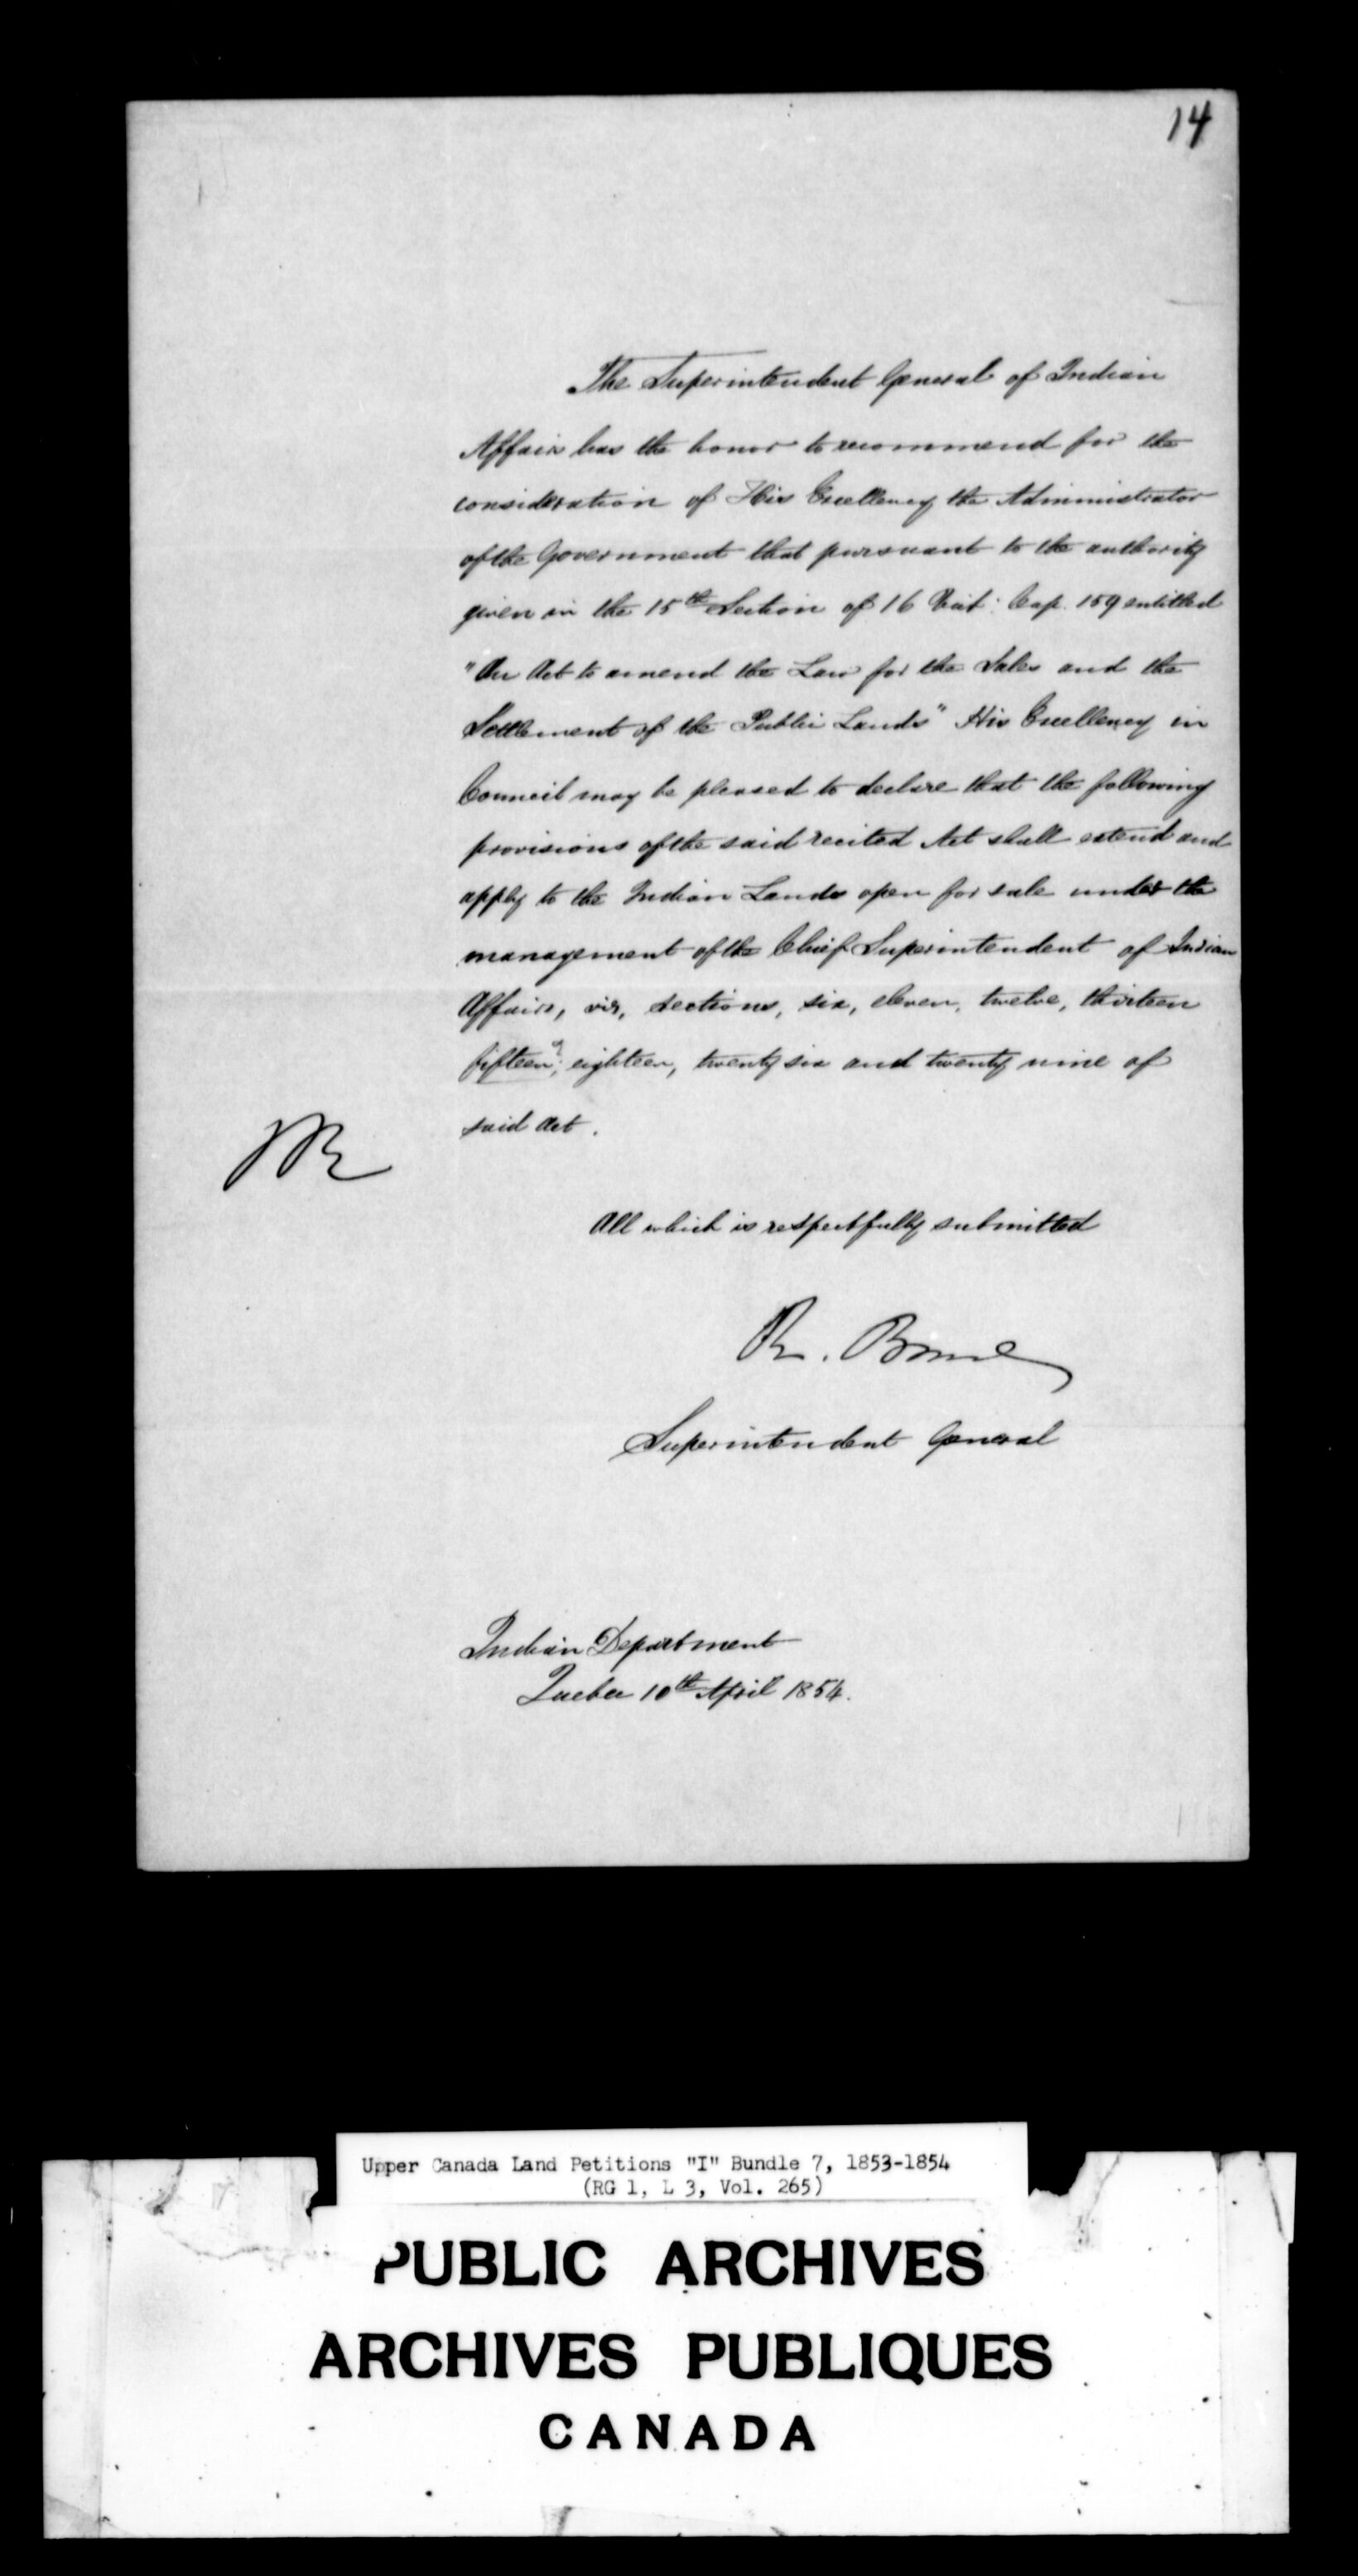 14
The Superintendent General of Indian
Affairs has the honor to recommend for the
consideration of His Excellency the Administrator
of the Government that pursuant to the authority
given in the 15th Section of 16 Vict: Cap. 159 entitled
"An Act to amend the Law for the Sales and the
Settlement of the Public Lands" His Excellency in
Council may be pleased to declare that the following
provisions of the said recited Act shall extend and
apply to the Indian Lands open for sale under the
management of the Chief Superintendent of Indian
Affairs, viz, sections, six, eleven, twelve, thirteen
fifteen, eighteen, twenty six and twenty nine of
said Act.
All which is respectfully submitted
R. Bruce
Superintendent General
Indian Department
Quebec 10th April 1854.
Upper Canada Land Petitions "I" Bundle 7, 1853-1854
(RG 1, L 3, Vol. 265)
PUBLIC ARCHIVES
ARCHIVES PUBLIQUES
CANADA